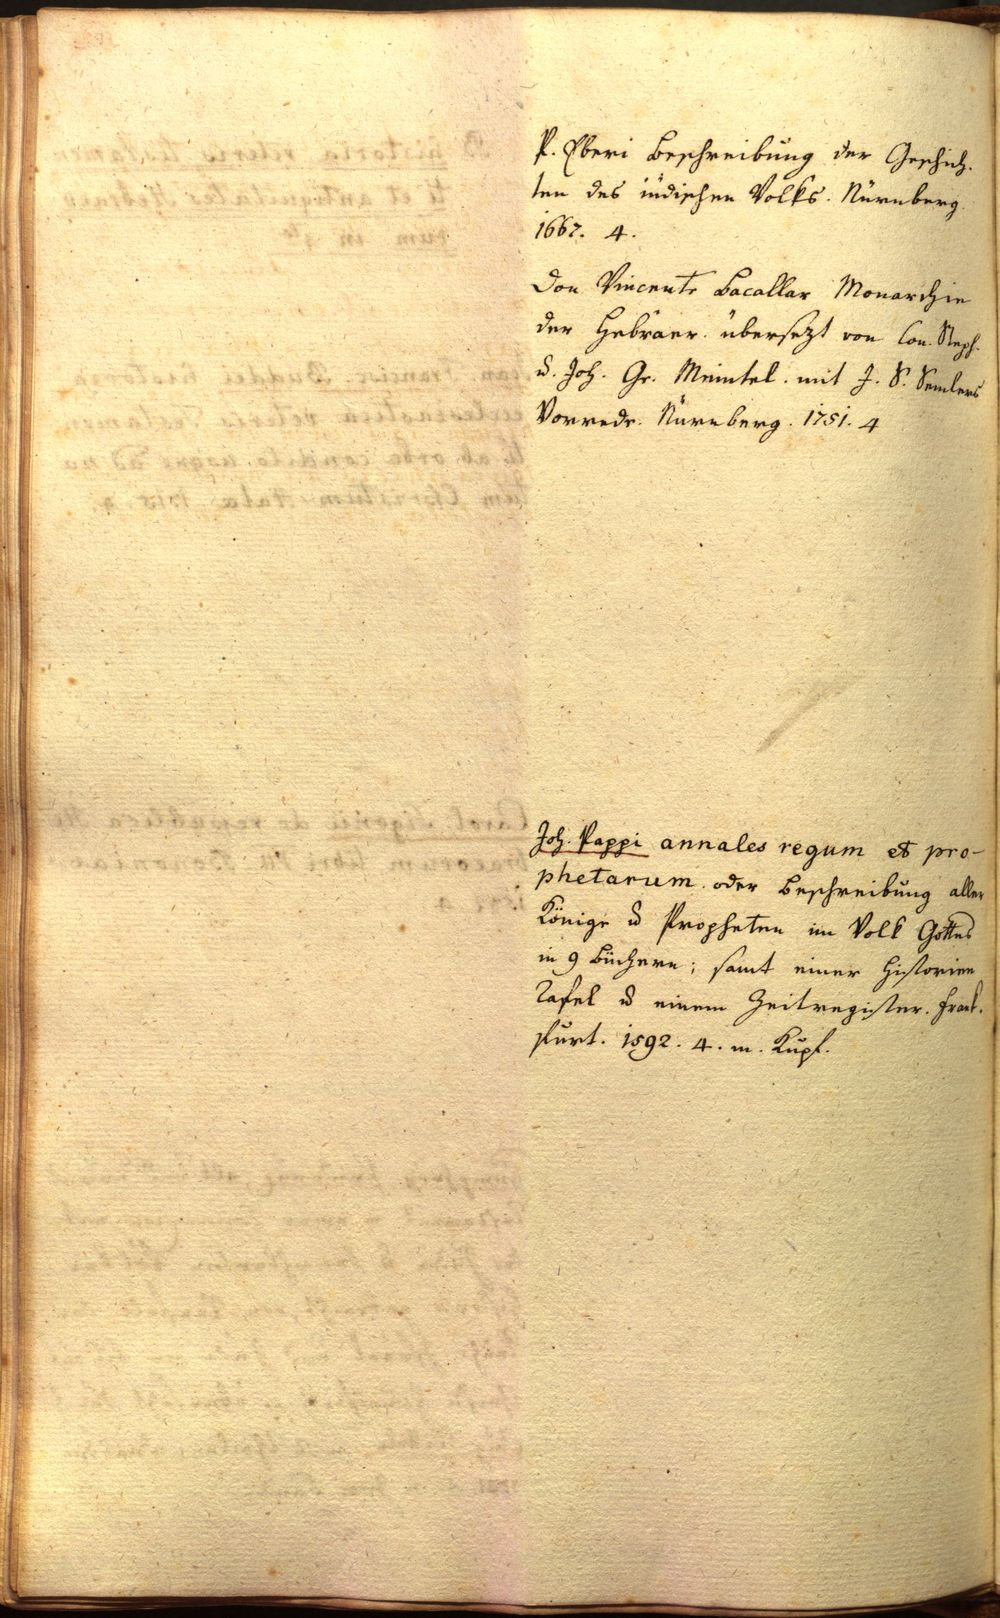 P. Eberi Beschreibung der Geschich-
ten des jüdischen Volks. Nürnberg.
1667. 4.
Don Vincente Bacallar Monarchie
der Hebräer. übersezt von Con. Steph.
u. Joh. Gr. Meintel. mit J. S. Semlers
Vorrede. Nürnberg. 1751. 4
Joh. Pappi annales regum et pro-
phetarum. oder Beschreibung aller
Könige u Propheten im Volk Gottes
in 9 Büchern; samt einer Historien
Tafel u einem Zeitregister. Frank-
furt. 1592. 4. m. Kupf.